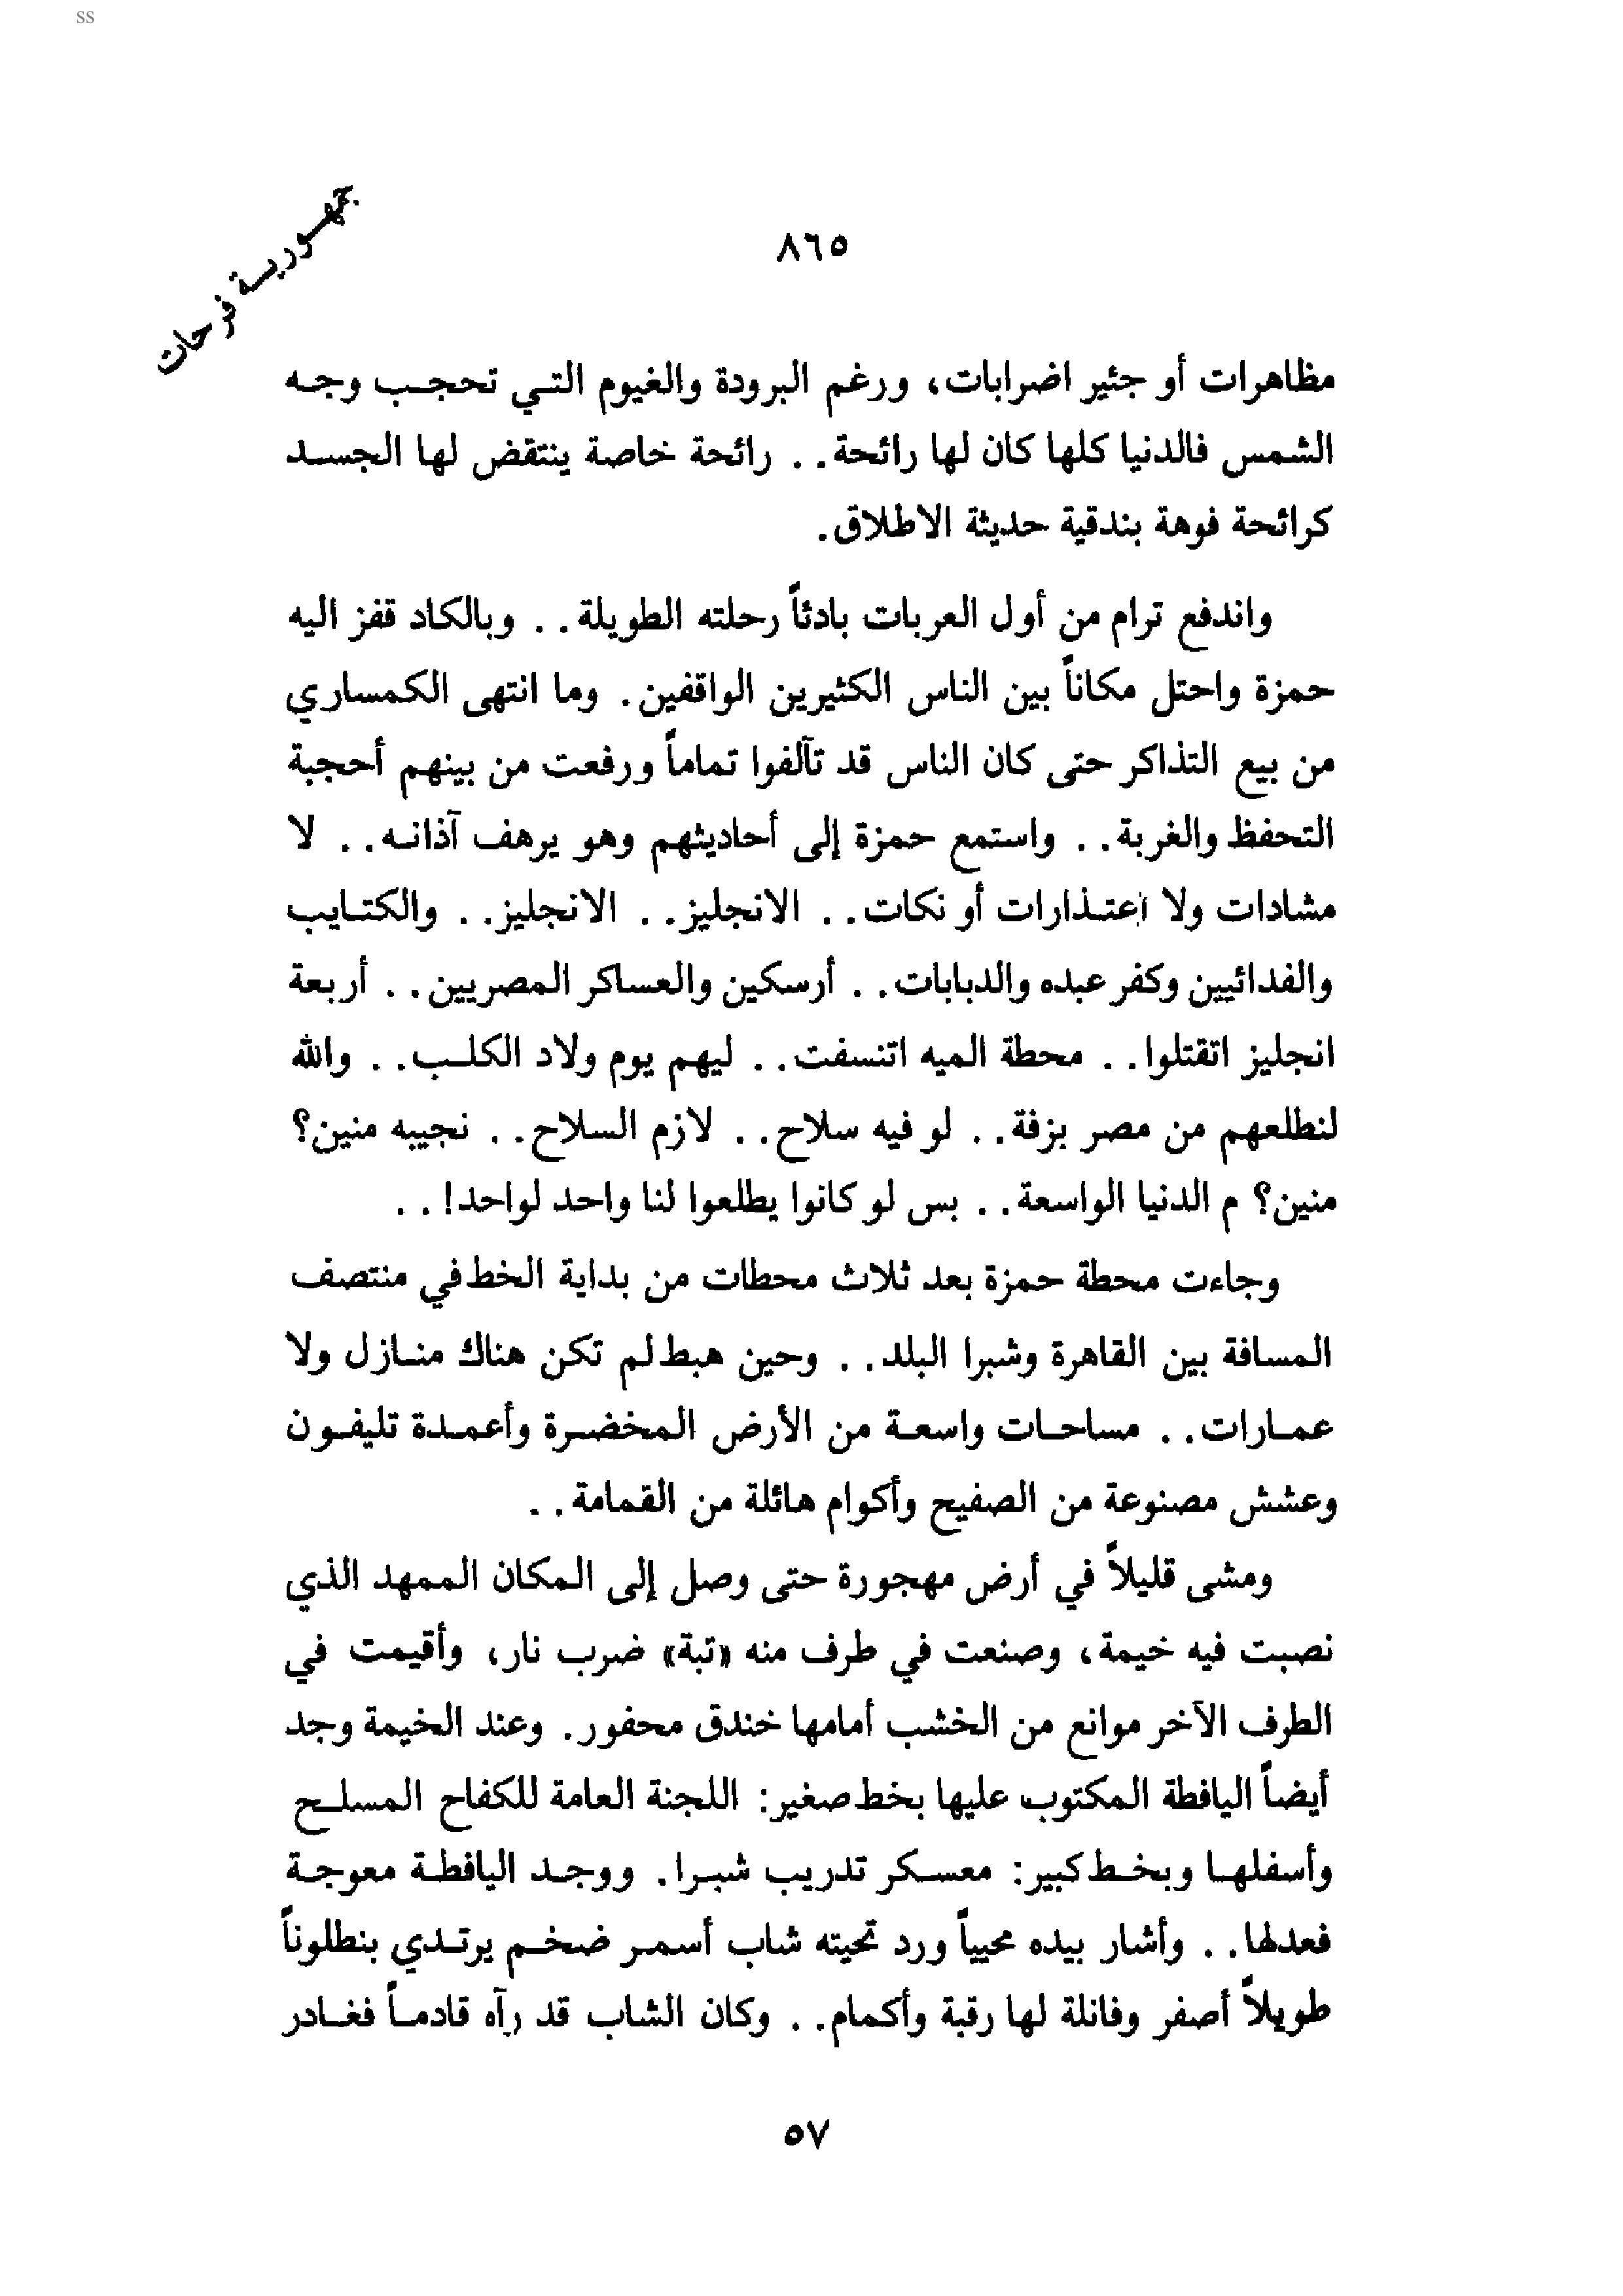 ss
جمهورية فرحات
٨٦٥
مظاهرات أو جئير اضرابات، ورغم البرودة والغيوم التي تحجب وجه
الشمس فالدنيا كلها كان لها رائحة.. رائحة خاصة ينتقض لها الجسد
كرائحة فوهة بندقية حديثة الاطلاق.
واندفع ترام من أول العربات بادئاً رحلته الطويلة.. وبالكاد قفز اليه
حمزة واحتل مكاناً بين الناس الكثيرين الواقفين. وما انتهى الكمساري
من بيع التذاكر حتى كان الناس قد تآلفوا تماماً ورفعت من بينهم أحجبة
التحفظ والغربة.. واستمع حمزة إلى أحاديثهم وهو يرهف آذانه.. لا
مشادات ولا اعتذارات أو نكات.. الانجليز.. الانجليز.. والكتايب
والفدائيين وكفر عبده والدبابات.. أرسكين والعساكر المصريين.. أربعة
انجليز اتقتلوا.. محطة الميه اتنسفت.. ليهم يوم ولاد الكلب.. والله
لنطلعهم من مصر بزفة.. لو فيه سلاح.. لازم السلاح.. نجيبه منين؟
منين؟ م الدنيا الواسعة.. بس لو كانوا يطلعوا لنا واحد لواحد!..
وجاءت محطة حمزة بعد ثلاث محطات من بداية الخط في منتصف
المسافة بين القاهرة وشبرا البلد.. وحين هبط لم تكن هناك منازل ولا
عمارات.. مساحات واسعة من الأرض المخضرة وأعمدة تليفون
وعشش مصنوعة من الصفيح وأكوام هائلة من القمامة..
ومشى قليلاً في أرض مهجورة حتى وصل إلى المكان الممهد الذي
نصبت فيه خيمة، وصنعت في طرف منه «تبة» ضرب نار، وأقيمت في
الطرف الآخر موانع من الخشب أمامها خندق محفور. وعند الخيمة وجد
أيضاً اليافطة المكتوب عليها بخط صغير: اللجنة العامة للكفاح المسلح
وأسفلها وبخط كبير: معسكر تدريب شبرا. ووجد اليافطة معوجة
فعدلها.. وأشار بيده محيياً ورد تحيته شاب أسمر ضخم يرتدي بنطلوناً
طويلاً أصفر وفانلة لها رقبة وأكمام.. وكان الشاب قد رآه قادماً فغادر
٥٧